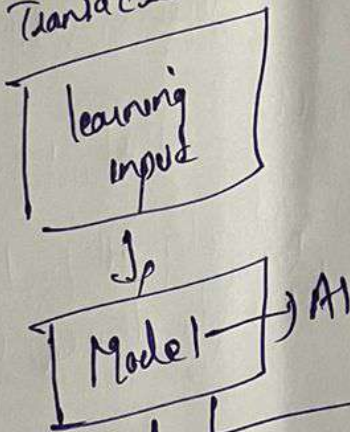 learning
input
Model
AI